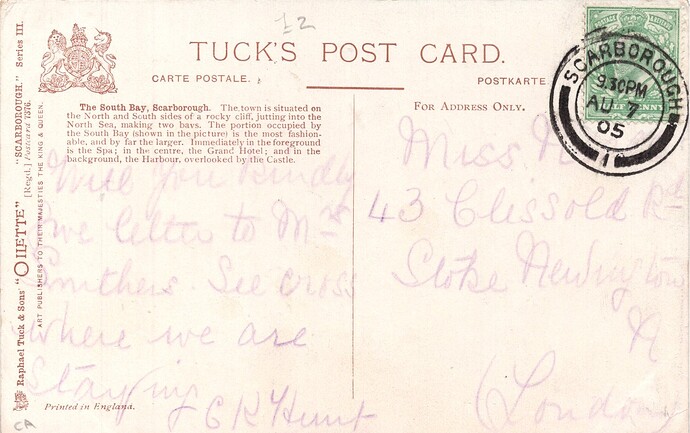 12
TUCK'S POST CARD.
CARTE POSTALE.
POSTKARTE
The South Bay, Scarborough. The town is situated on
the North and South sides of a rocky cliff, jutting into the
North Sea, making two bays. The portion occupied by
the South Bay (shown in the picture) is the most fashion-
able, and by far the larger. Immediately in the foreground
is the Spa; in the centre, the Grand Hotel; and in the
background, the Harbour, overlooked by the Castle.
Raphael Tuck & Sons' "OILETTE" [Regd.] Postcard 1376. "SCARBOROUGH." Series III.
ART PUBLISHERS TO THEIR MAJESTIES THE KING & QUEEN.
Will you kindly
letter to Mrs
Smithers. See cross
where we are
Staying
E K Hunt
Printed in England.
CA
FOR ADDRESS ONLY.
Miss
43 Clissold Rd
Stoke Newington
N
London
SCARBOROUGH
9.30PM
AU 7
05
POSTAGE & REVENUE
HALFPENNY